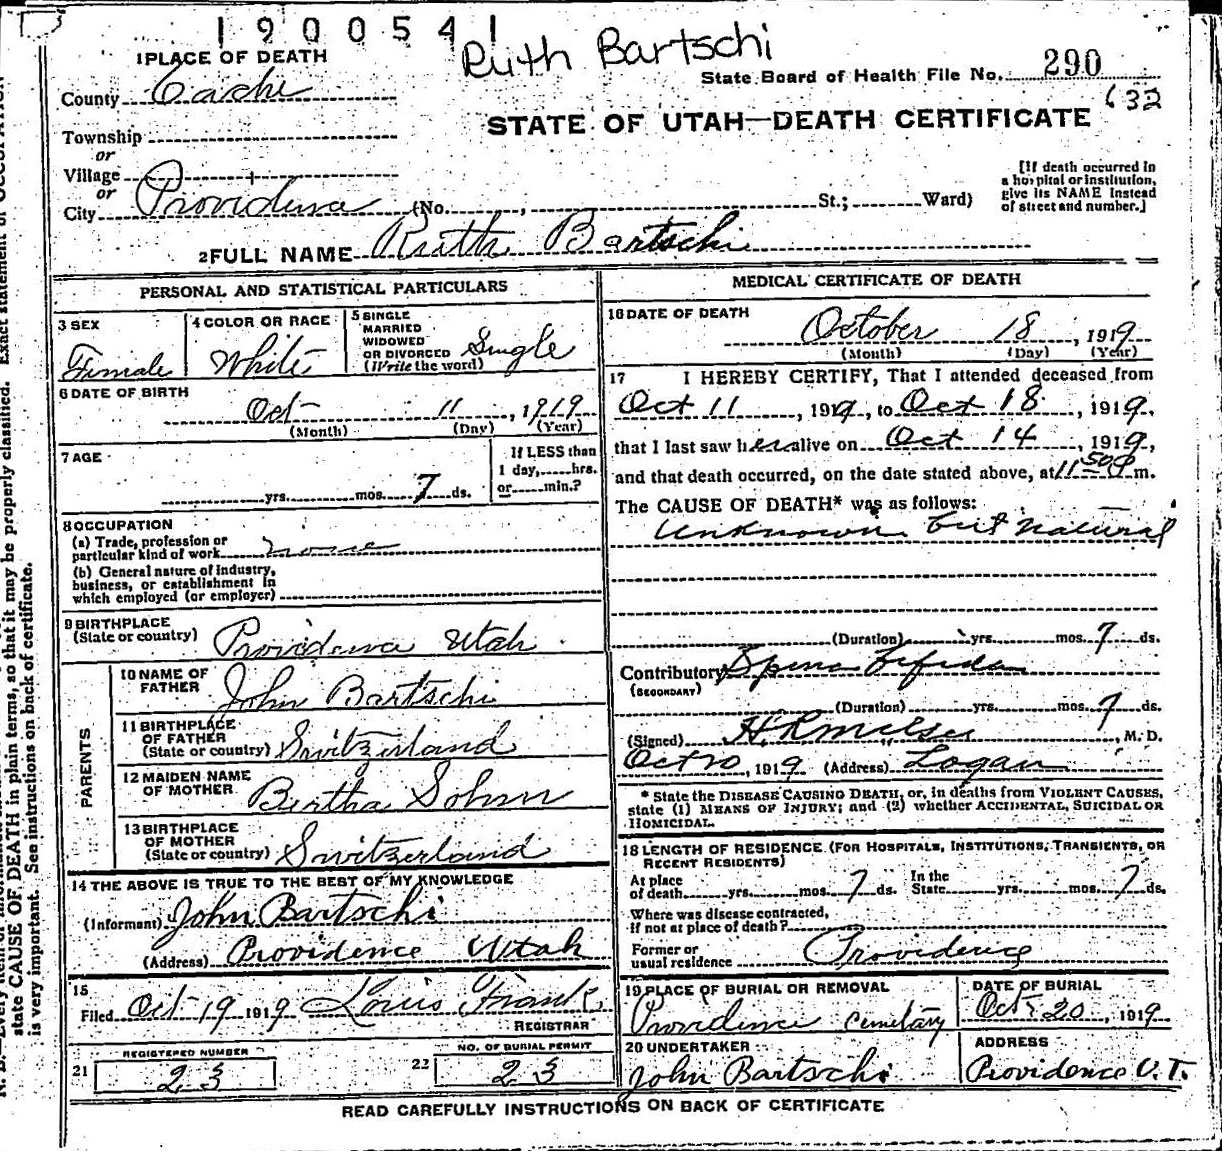 1900541
Ruth Bartschi
1 PLACE OF DEATH
State Board of Health File No. 290
County Cache
632
STATE OF UTAH—DEATH CERTIFICATE
Township
or
Village
or
City Providence (No. , St.; Ward)
[If death occurred in
a hospital or institution,
give its NAME instead
of street and number.]
2 FULL NAME Ruth Bartschi
PERSONAL AND STATISTICAL PARTICULARS
3 SEX
Female
4 COLOR OR RACE
White
5 SINGLE
MARRIED
WIDOWED
OR DIVORCED
(Write the word)
Single
6 DATE OF BIRTH
Oct 11, 1919
(Month) (Day) (Year)
7 AGE
yrs. mos. 7 ds.
If LESS than
1 day, hrs.
or min.?
8 OCCUPATION
(a) Trade, profession or
particular kind of work none
(b) General nature of industry,
business, or establishment in
which employed (or employer)
9 BIRTHPLACE
(State or country) Providence Utah
PARENTS
10 NAME OF
FATHER John Bartschi
11 BIRTHPLACE
OF FATHER
(State or country) Switzerland
12 MAIDEN NAME
OF MOTHER Bertha Sohm
13 BIRTHPLACE
OF MOTHER
(State or country) Switzerland
14 THE ABOVE IS TRUE TO THE BEST OF MY KNOWLEDGE
(Informant) John Bartschi
(Address) Providence Utah
15
Filed Oct 19 1919 Louis Frank
REGISTRAR
REGISTERED NUMBER
21 23
NO. OF BURIAL PERMIT
22 23
MEDICAL CERTIFICATE OF DEATH
16 DATE OF DEATH
October 18, 1919
(Month) (Day) (Year)
17 I HEREBY CERTIFY, That I attended deceased from
Oct 11, 1919, to Oct 18, 1919,
that I last saw her alive on Oct 14, 1919,
and that death occurred, on the date stated above, at 11 50 P m.
The CAUSE OF DEATH* was as follows:
Unknown but natural
(Duration) yrs. mos. 7 ds.
Contributory Spina bifida
(SECONDARY)
(Duration) yrs. mos. 7 ds.
(Signed) , M. D.
Oct 20, 1919 (Address) Logan
* State the DISEASE CAUSING DEATH, or, in deaths from VIOLENT CAUSES,
state (1) MEANS OF INJURY; and (2) whether ACCIDENTAL, SUICIDAL OR
HOMICIDAL.
18 LENGTH OF RESIDENCE (FOR HOSPITALS, INSTITUTIONS, TRANSIENTS, OR
RECENT RESIDENTS)
At place
of death yrs. mos. 7 ds. In the
State yrs. mos. 7 ds.
Where was disease contracted,
If not at place of death?
Former or
usual residence Providence
19 PLACE OF BURIAL OR REMOVAL
Providence cemetary
DATE OF BURIAL
Oct 20, 1919
20 UNDERTAKER
John Bartschi
ADDRESS
Providence U.T.
READ CAREFULLY INSTRUCTIONS ON BACK OF CERTIFICATE
state CAUSE OF DEATH in plain terms, so that it may be properly classified. Exact statement of OCCUPATION
is very important. See instructions on back of certificate.